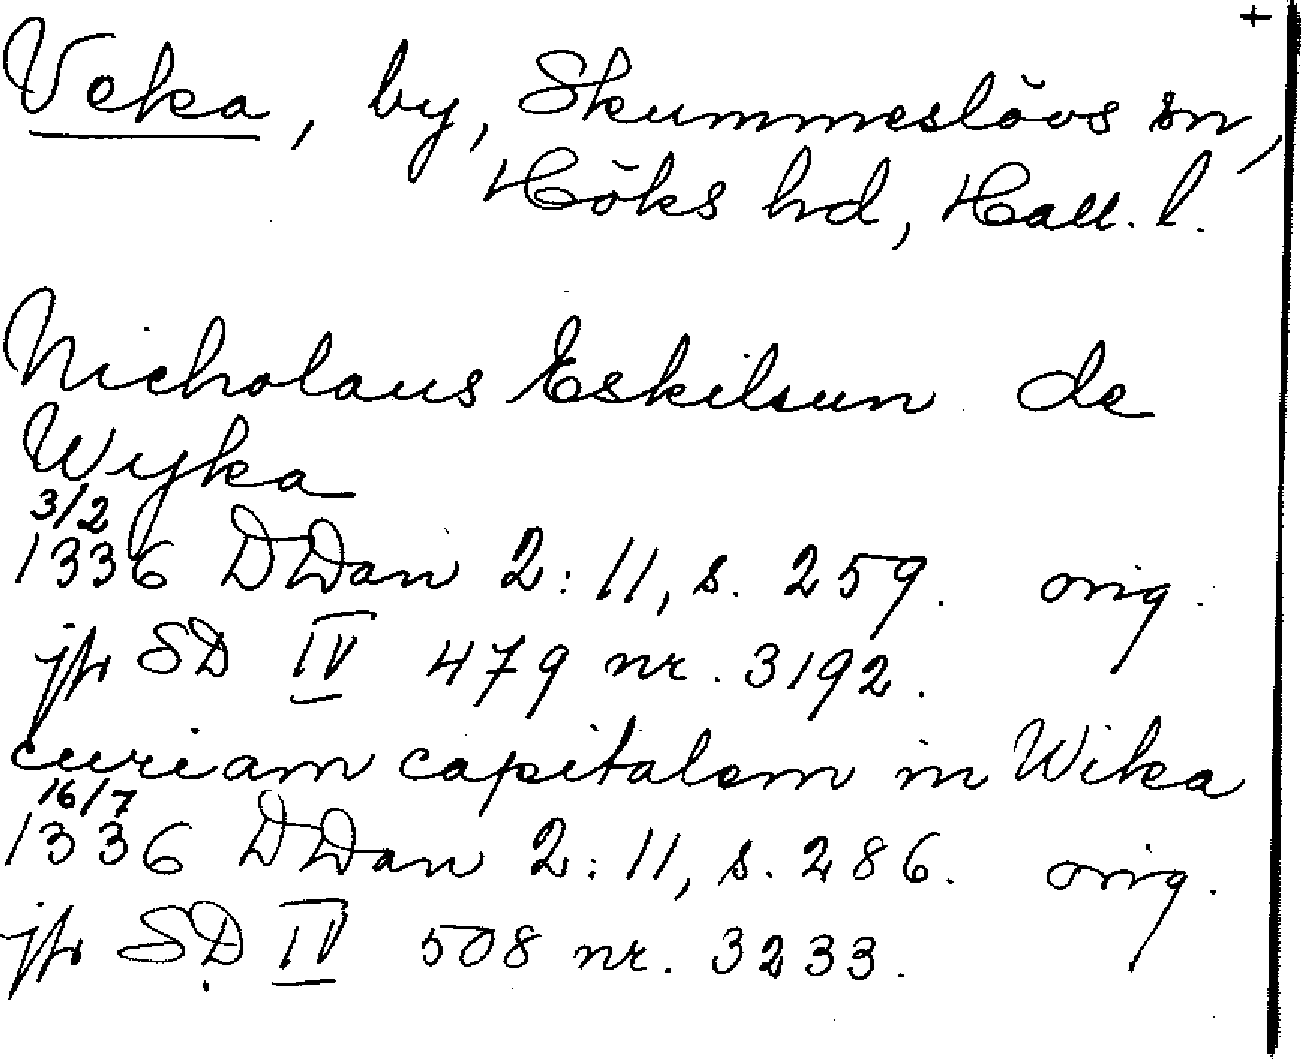 +
Veka, by, Skummeslövs sn,
Höks hd, Hall. l.
Nicholaus Eskilsun de
Wyka
3/2
1336 DDan 2:11, s. 259. orig.
jfr SD IV 479 nr. 3192.
curiam capitalem in Wika
16/7
1336 DDan 2:11, s. 286. orig.
jfr SD IV 508 nr. 3233.